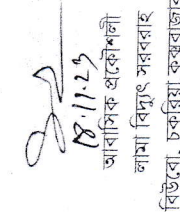 ১৪.১১.২৩
আবাসিক প্রকৌশলী
লামা বিদ্যুৎ সরবরাহ
বিউবো, চকরিয়া কক্সবাজার